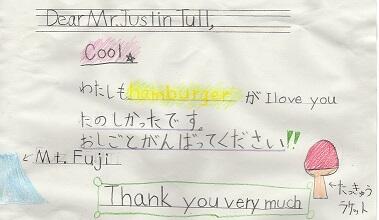 Dear Mr. Justin Tull,
Cool☆
わたしも hamburger が I love you
たのしかったです。
おしごとがんばってください!!
Mt. Fuji
たっきゅう
ラケット
Thank you very much